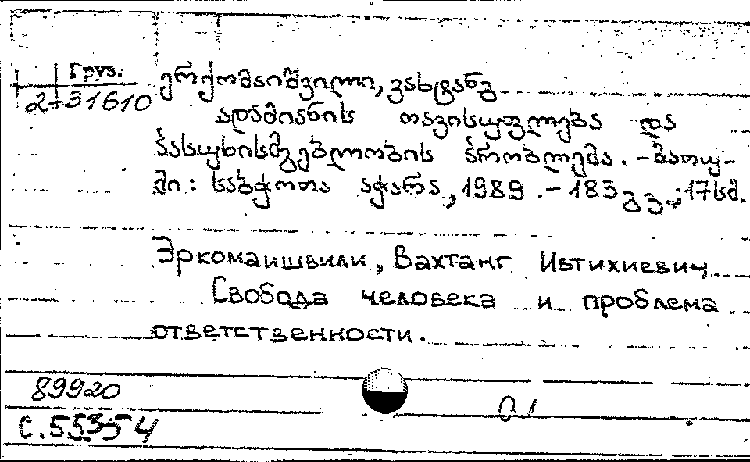 Груз.
2-31610
ერქომაიშვილი, ვახტანგ
ადამიანის თავისუფლება და
პასუხისმგებლობის პრობლემა. - ბათუ-
მი: საბჭოთა აჭარა, 1989. - 183 გვ.; 17სმ.
Эркомаишвили, Вахтанг Ивтихиевич
Свобода человека и проблема
ответственности.
89920
с. 55354